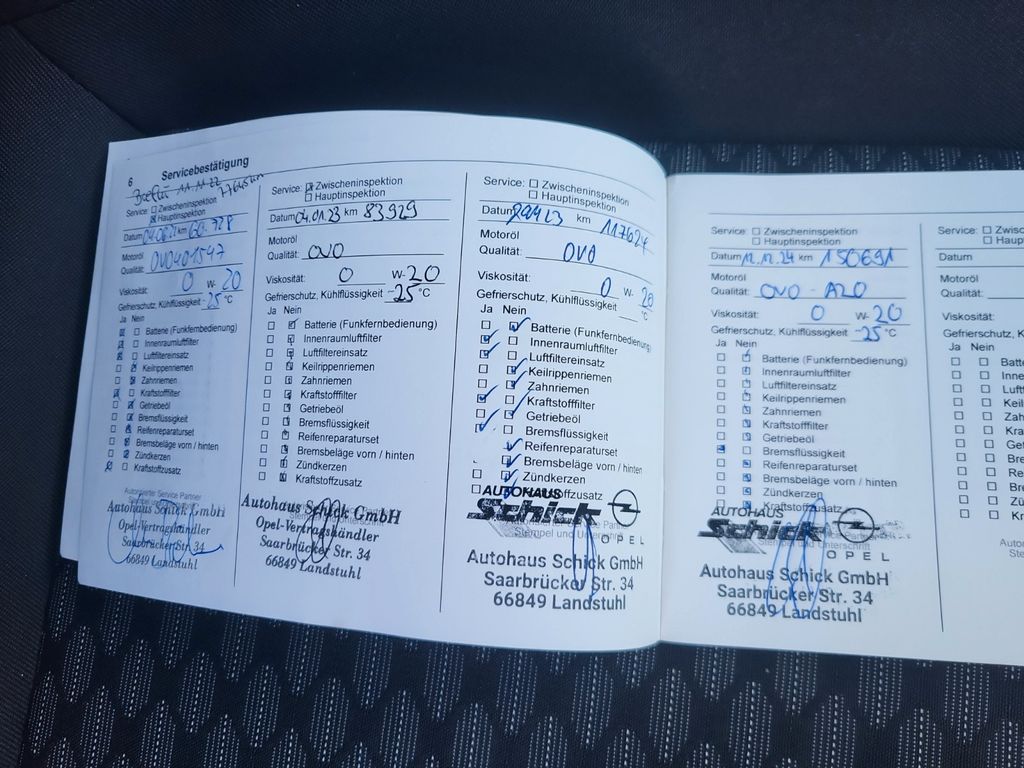 6 Servicebestätigung
11.11.22
Service: Zwischeninspektion
Hauptinspektion
Datum km
Motoröl
Qualität: OVO401547
Viskosität: 0 W- 20
Gefrierschutz, Kühlflüssigkeit -25 °C
Ja Nein
Batterie (Funkfernbedienung)
Innenraumluftfilter
Luftfiltereinsatz
Keilrippenriemen
Zahnriemen
Kraftstofffilter
Getriebeöl
Bremsflüssigkeit
Reifenreparaturset
Bremsbeläge vorn / hinten
Zündkerzen
Kraftstoffzusatz
Autorisierter Service Partner
Autohaus Schick GmbH
Opel-Vertragshändler
Saarbrücker Str. 34
66849 Landstuhl
Service: Zwischeninspektion
Hauptinspektion
Datum 04.01.23 km 83929
Motoröl
Qualität: OVO
Viskosität: 0 W- 20
Gefrierschutz, Kühlflüssigkeit -25 °C
Ja Nein
Batterie (Funkfernbedienung)
Innenraumluftfilter
Luftfiltereinsatz
Keilrippenriemen
Zahnriemen
Kraftstofffilter
Getriebeöl
Bremsflüssigkeit
Reifenreparaturset
Bremsbeläge vorn / hinten
Zündkerzen
Kraftstoffzusatz
Autohaus Schick GmbH
Opel-Vertragshändler
Saarbrücker Str. 34
66849 Landstuhl
Service: Zwischeninspektion
Hauptinspektion
Datum km 117624
Motoröl
Qualität: OVO
Viskosität: 0 W- 20
Gefrierschutz, Kühlflüssigkeit °C
Ja Nein
Batterie (Funkfernbedienung)
Innenraumluftfilter
Luftfiltereinsatz
Keilrippenriemen
Zahnriemen
Kraftstofffilter
Getriebeöl
Bremsflüssigkeit
Reifenreparaturset
Bremsbeläge vorn / hinten
Zündkerzen
AUTOHAUS
Schick
OPEL
Autohaus Schick GmbH
Saarbrücker Str. 34
66849 Landstuhl
Service: Zwischeninspektion
Hauptinspektion
Datum 12.12.24 km 150691
Motoröl
Qualität: OVO - A20
Viskosität: 0 W- 20
Gefrierschutz, Kühlflüssigkeit -25 °C
Ja Nein
Batterie (Funkfernbedienung)
Innenraumluftfilter
Luftfiltereinsatz
Keilrippenriemen
Zahnriemen
Kraftstofffilter
Getriebeöl
Bremsflüssigkeit
Reifenreparaturset
Bremsbeläge vorn / hinten
Zündkerzen
Kraftstoffzusatz
AUTOHAUS
Schick
OPEL
Autohaus Schick GmbH
Saarbrücker Str. 34
66849 Landstuhl
Service: Zwisc
Haup
Datum
Motoröl
Qualität:
Viskosität:
Gefrierschutz, K
Ja Nein
Batte
Inne
Luft
Keil
Zah
Kra
Ge
Br
Re
Br
Z
K